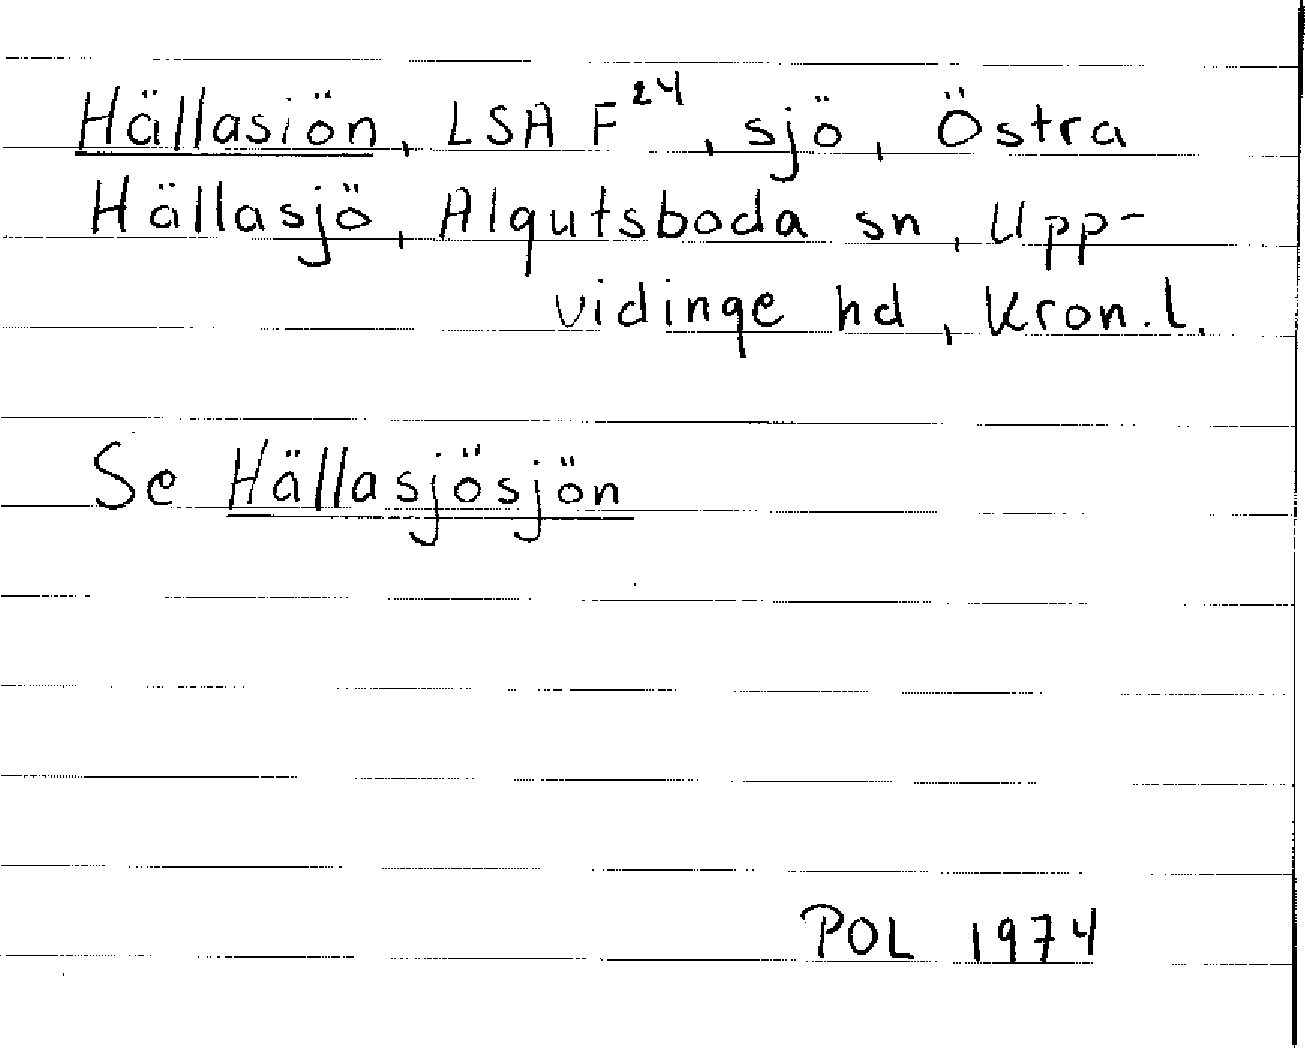 Hällasiön, LSA F²⁴, sjö, Östra
Hällasjö, Algutsboda sn, Upp-
vidinge hd, Kron.l.
Se Hällasjösjön
POL 1974